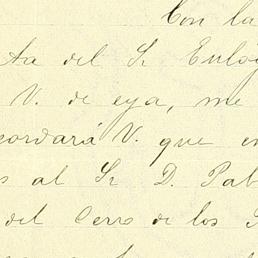 Con la
ta del Sr Euló
V. de eya, me
cordará V. que e
s al Sr D. Pab
del Cerro de los